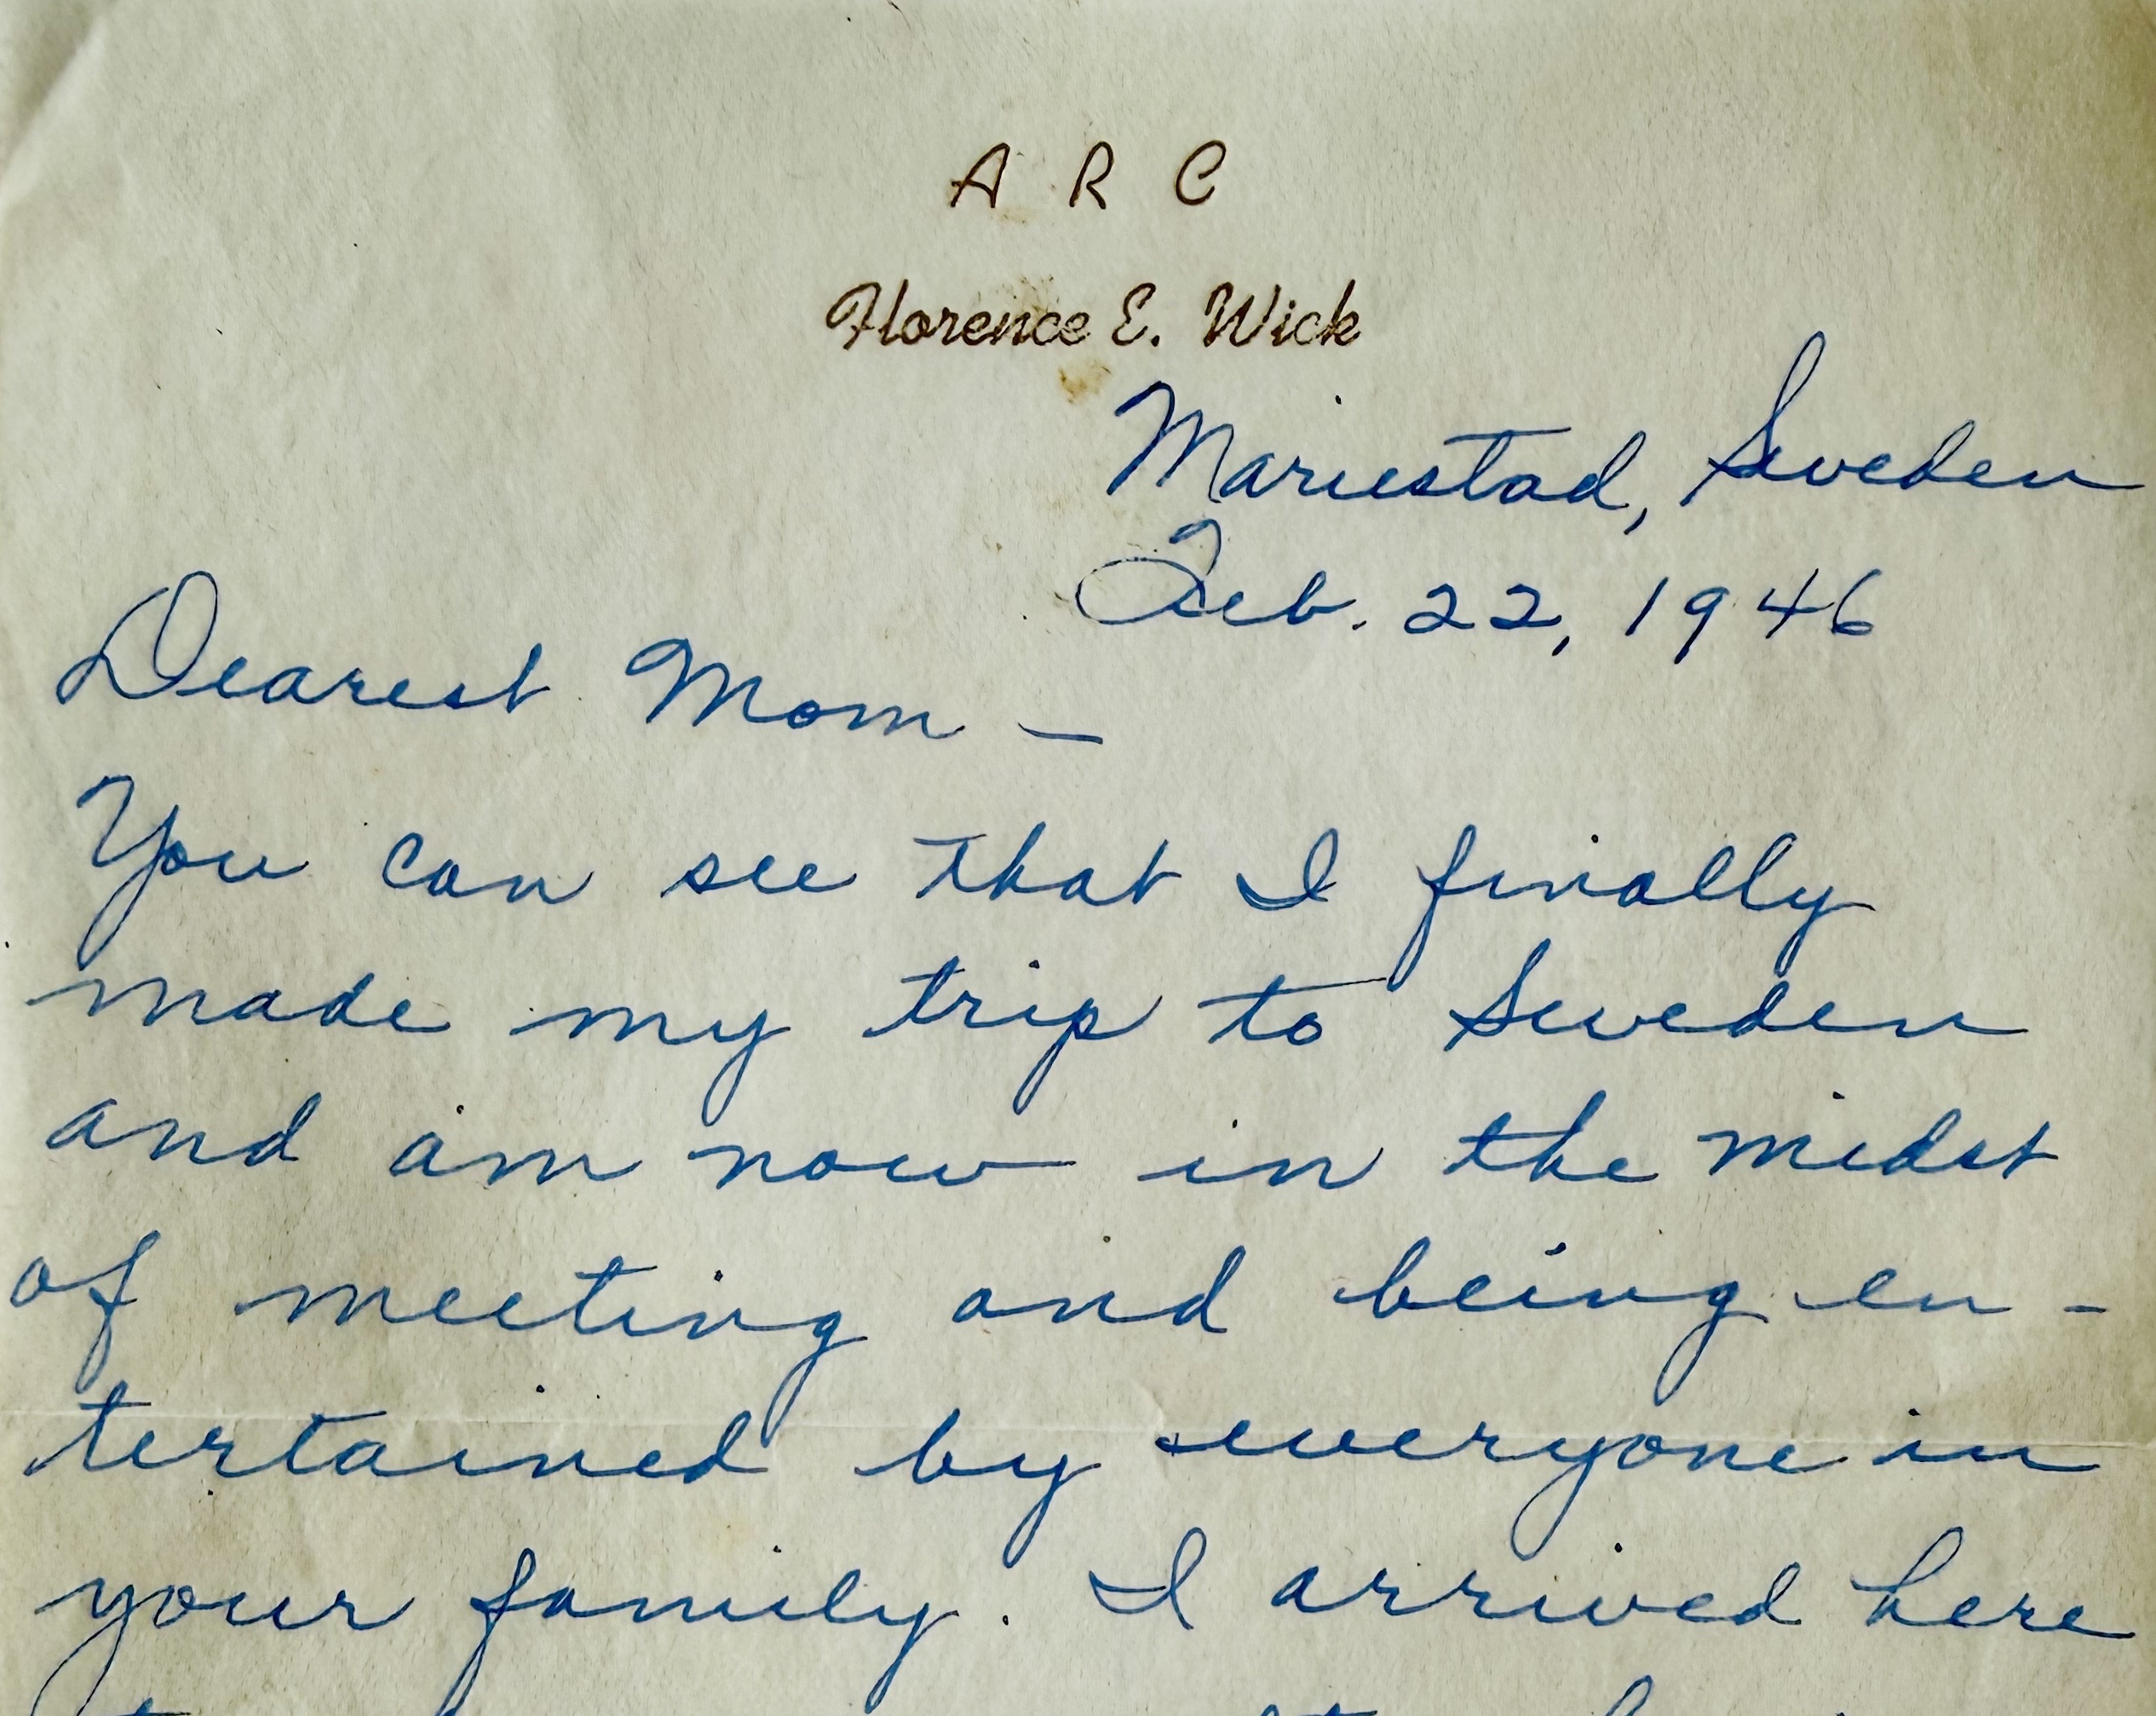 A R C
Florence E. Wick
Mariestad, Sweden
Feb. 22, 1946
Dearest Mom –
You can see that I finally
made my trip to Sweden
and am now in the midst
of meeting and being en-
tertained by everyone in
your family. I arrived here